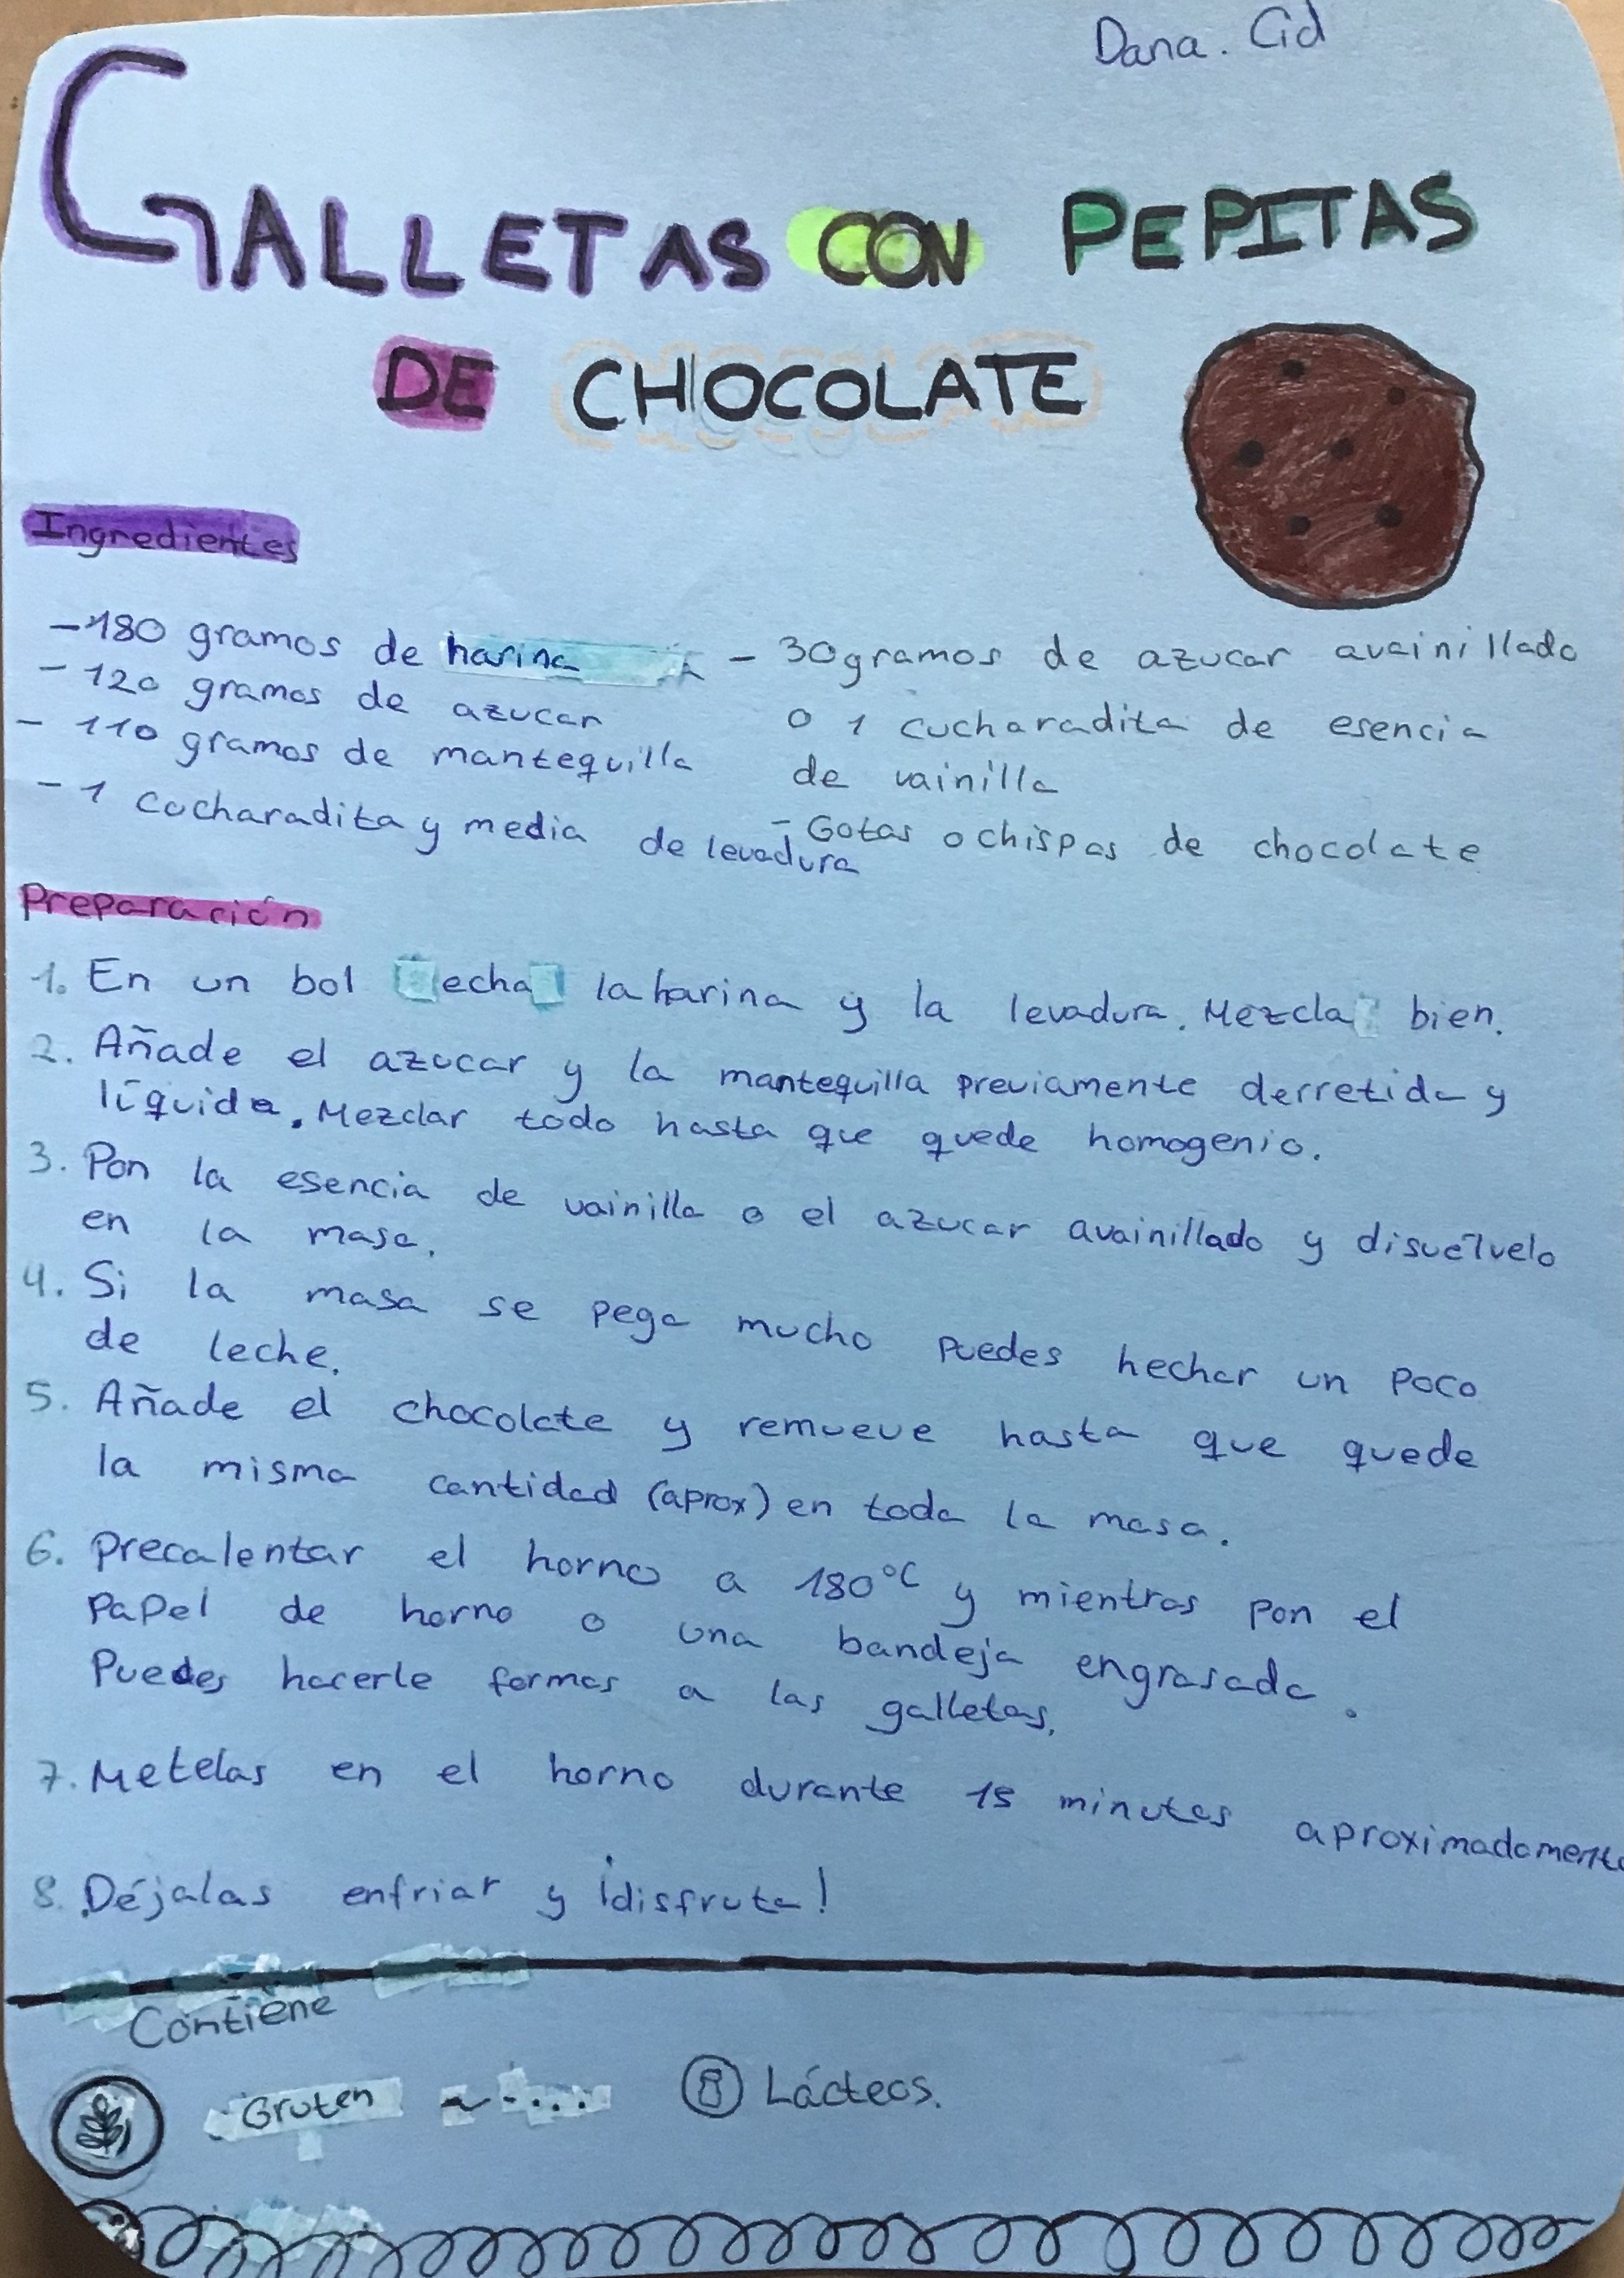 Dana. Cid
GALLETAS CON PEPITAS
DE CHOCOLATE
Ingredientes
-180 gramos de harina
- 120 gramos de azucar
- 110 gramos de mantequilla
- 1 cucharadita y media de levadura
- 30gramos de azucar avainillado
o 1 cucharadita de esencia
de vainilla
- Gotas o chispas de chocolate
Preparación
1. En un bol echa la harina y la levadura. Mezcla bien.
2. Añade el azucar y la mantequilla previamente derretida y
líquida. Mezclar todo hasta que quede homogenio.
3. Pon la esencia de vainilla o el azucar avainillado y disuélvelo
en la masa.
4. Si la masa se pega mucho puedes hechar un poco
de leche.
5. Añade el chocolate y remueve hasta que quede
la misma cantidad (aprox) en toda la masa.
6. Precalentar el horno a 180°C y mientras pon el
papel de horno o una bandeja engrasada.
Puedes hacerle formas a las galletas.
7. Metelas en el horno durante 15 minutos aproximadamente
8. Déjalas enfriar y ¡disfruta!
Contiene
Gruten ~-... Lácteos.